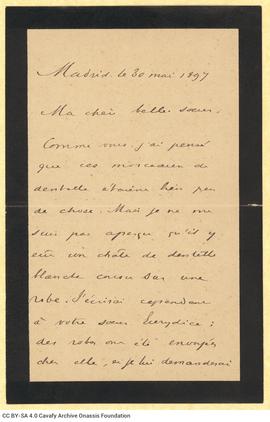 Madrid le 30 mai 1897
Ma chère belle-sœur,
Comme vous j'ai pensé
que ces morceaux de
dentelle étaient bien peu
de chose. Mais je ne me
suis pas aperçu qu'il y
eût un châle de dentelle
blanche cousu sur une
robe. J'écrirai cependant
à votre sœur Eurydice ;
des robes ont été envoyées
chez elle, et je lui demanderai
CC BY-SA 4.0 Cavafy Archive Onassis Foundation